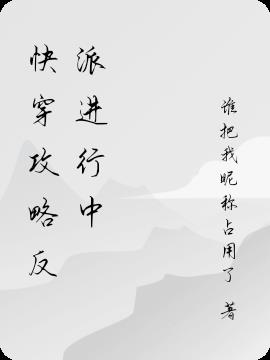 快穿攻略反
派进行中
谁把我昵称占用了 著